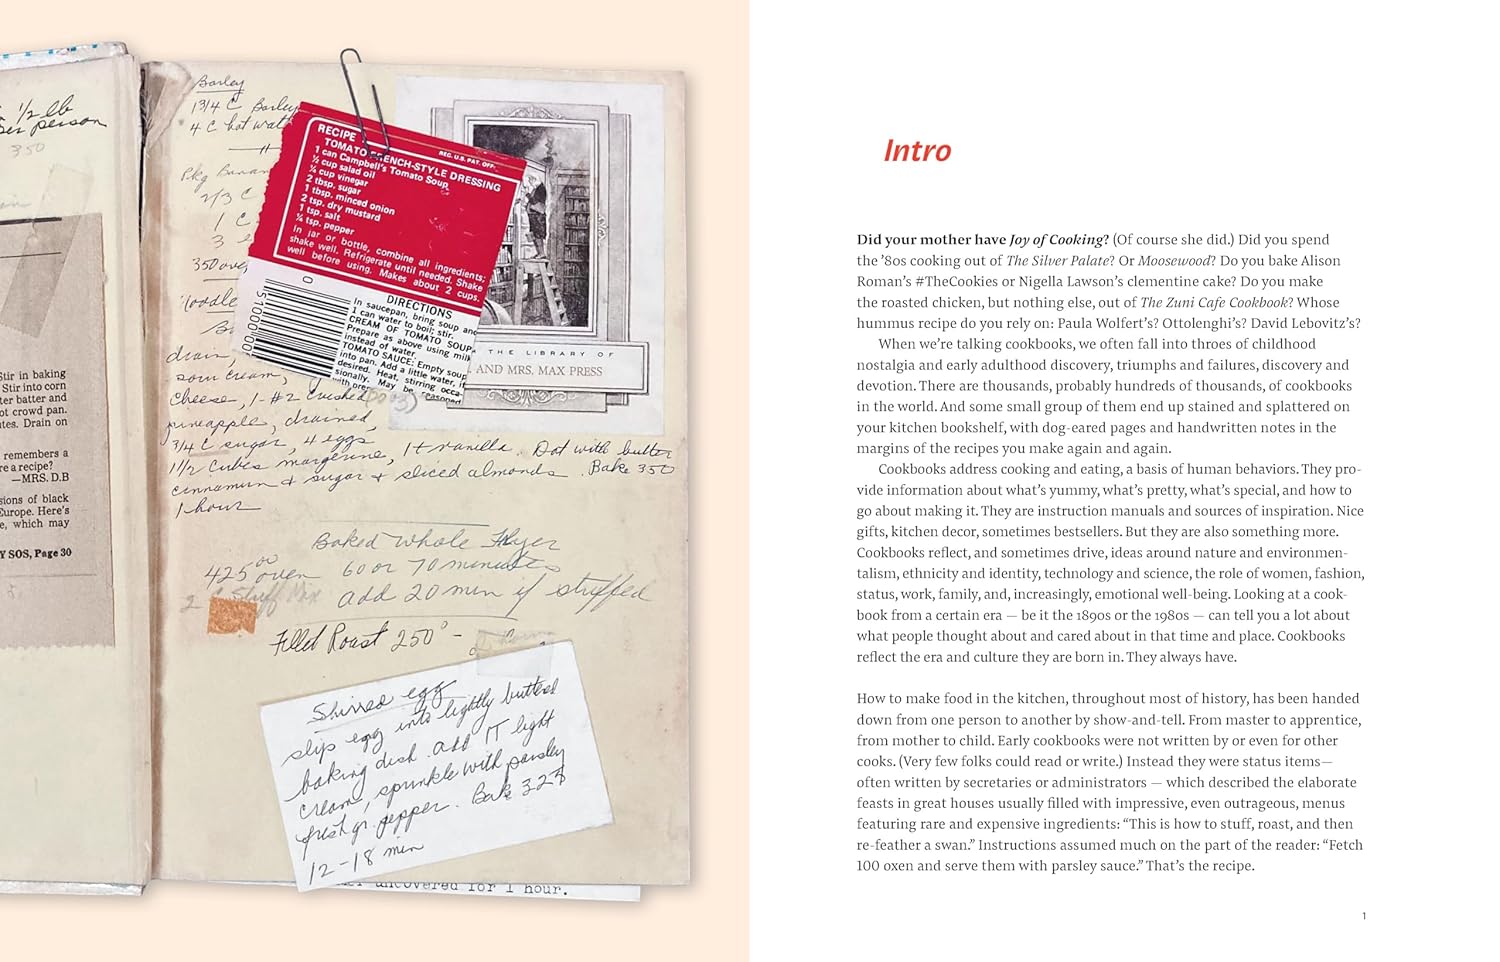 1/2 lb
per person
350
Stir in baking
Stir into corn
ter batter and
ot crowd pan.
utes. Drain on
remembers a
re a recipe?
—MRS. D.B
sions of black
Europe. Here's
e, which may
Y SOS, Page 30
Barley
1 3/4 C Barley
4 C hot wat
Pkg Banan
2/3 C
1 C
3 e
350 ove
Noodle
drain,
sour cream,
cheese, 1-#2 crushed
pineapple, drained,
3/4 C sugar, 4 eggs
1 1/2 cubes margerine, 1 t vanilla. Dot with butter
cinnamon & sugar & sliced almonds. Bake 350
1 hour
RECIPE
REG. U.S. PAT. OFF.
TOMATO FRENCH-STYLE DRESSING
1 can Campbell's Tomato Soup
½ cup salad oil
¼ cup vinegar
2 tbsp. sugar
1 tbsp. minced onion
2 tsp. dry mustard
1 tsp. salt
¼ tsp. pepper
In jar or bottle, combine all ingredients;
shake well. Refrigerate until needed. Shake
well before using. Makes about 2 cups.
0
51000
DIRECTIONS
In saucepan, bring soup and
1 can water to boil; stir.
CREAM OF TOMATO SOUP:
Prepare as above using milk
instead of water.
TOMATO SAUCE: Empty soup
into pan. Add a little water, if
desired. Heat, stirring occa-
sionally. May be seasoned
THE LIBRARY OF
AND MRS. MAX PRESS
Baked Whole Fryer
425° oven 60 or 70 minutes
add 20 min if stuffed
Fillet Roast 250° -
Shirred egg
slip egg into lightly buttered
baking dish. add 1T light
cream, sprinkle with parsley
fresh gr. pepper. Bake 325
12-18 min
uncovered for 1 hour.
Intro
Did your mother have Joy of Cooking? (Of course she did.) Did you spend
the ’80s cooking out of The Silver Palate? Or Moosewood? Do you bake Alison
Roman’s #TheCookies or Nigella Lawson’s clementine cake? Do you make
the roasted chicken, but nothing else, out of The Zuni Cafe Cookbook? Whose
hummus recipe do you rely on: Paula Wolfert’s? Ottolenghi’s? David Lebovitz’s?
When we’re talking cookbooks, we often fall into throes of childhood
nostalgia and early adulthood discovery, triumphs and failures, discovery and
devotion. There are thousands, probably hundreds of thousands, of cookbooks
in the world. And some small group of them end up stained and splattered on
your kitchen bookshelf, with dog-eared pages and handwritten notes in the
margins of the recipes you make again and again.
Cookbooks address cooking and eating, a basis of human behaviors. They pro-
vide information about what’s yummy, what’s pretty, what’s special, and how to
go about making it. They are instruction manuals and sources of inspiration. Nice
gifts, kitchen decor, sometimes bestsellers. But they are also something more.
Cookbooks reflect, and sometimes drive, ideas around nature and environmen-
talism, ethnicity and identity, technology and science, the role of women, fashion,
status, work, family, and, increasingly, emotional well-being. Looking at a cook-
book from a certain era — be it the 1890s or the 1980s — can tell you a lot about
what people thought about and cared about in that time and place. Cookbooks
reflect the era and culture they are born in. They always have.
How to make food in the kitchen, throughout most of history, has been handed
down from one person to another by show-and-tell. From master to apprentice,
from mother to child. Early cookbooks were not written by or even for other
cooks. (Very few folks could read or write.) Instead they were status items—
often written by secretaries or administrators — which described the elaborate
feasts in great houses usually filled with impressive, even outrageous, menus
featuring rare and expensive ingredients: “This is how to stuff, roast, and then
re-feather a swan.” Instructions assumed much on the part of the reader: “Fetch
100 oxen and serve them with parsley sauce.” That’s the recipe.
1